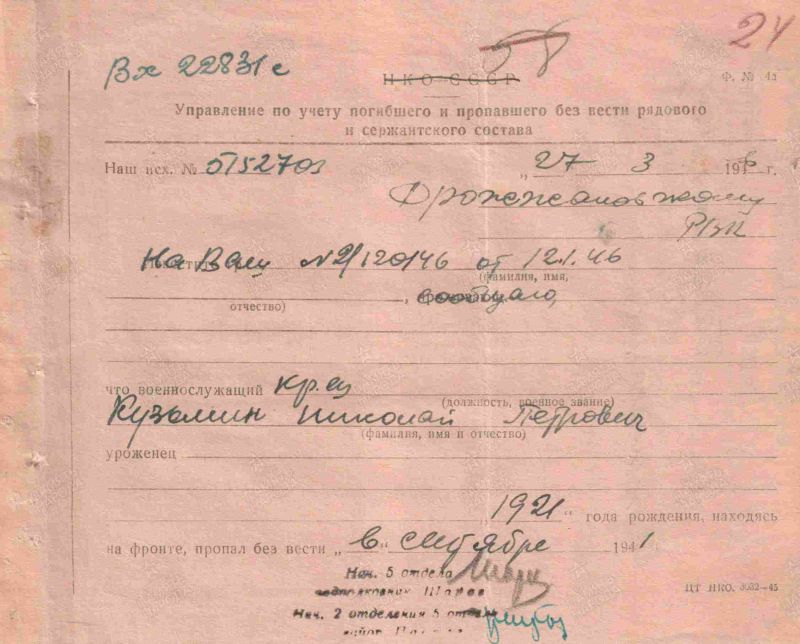 58
24
Вх 22831с
НКО СССР
Ф. № 4а
Управление по учету погибшего и пропавшего без вести рядового
и сержантского состава
Наш исх. №
„27 3 1946 г.
Дрожжановскому
РВК
На Ваш №2/120146 от 12.1.46
(фамилия, имя,
отчество)
, сообщаю,
что военнослужащий кр-ец
(должность, военное звание)
Кузьмин Николай Петрович
(фамилия, имя и отчество)
уроженец
„1921“ года рождения, находясь
на фронте, пропал без вести „в“ сентябре 1941
Нач. 5 отдела
подполковник Шапов
ЦТ НКО. 3032—45
Нач. 2 отделения 5 отдела
майор